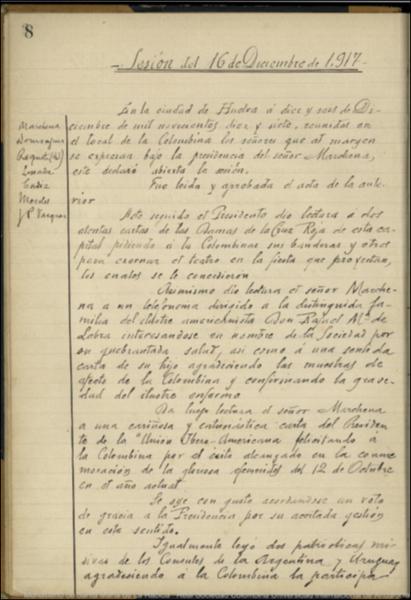 8
Sesión del 16 de Diciembre de 1,917
En la ciudad de Huelva á diez y seis de Di-
ciembre de mil novecientos diez y siete, reunidos en
el local de la Colombina los señores que al margen
se expresan bajo la presidencia del señor Marchena,
este declaró abierta la sesión.
Marchena
Dominguez
Cadiz
Morales
J P Vazquez
Fue leida y aprobada el acta de la ante-
rior
Acto seguido el Presidente dio lectura a dos
atentas cartas de las Damas de la Cruz Roja de esta ca-
pital pidiendo á la Colombina sus banderas y otros
para exornar el teatro en la fiesta que proyectan,
los cuales se le concedieron
Asimismo dio lectura el señor Marche-
na a un telefonema dirigido a la distinguida fa-
milia del ilustre americanista Don Rafael Mª de
Labra interesandose en nombre de la Sociedad por
su quebrantada salud, asi como á una sentida
carta de su hijo agradeciendo las muestras de
afecto de la Colombina y confirmando la grave-
dad del ilustre enfermo
Da luego lectura el señor Marchena
a una cariñosa y entusiástica carta del Presiden-
te de la "Union Ibero-Americana felicitando á
la Colombina por el éxito alcanzado en la conme-
moración de la gloriosa efemérides del 12 de Octubre
en el año actual
Se oye con gusto acordandose un voto
de gracia a la Presidencia por su acertada gestión
en este sentido.
Igualmente leyó dos patrióticas mi-
sivas de los Consules de la Argentina y Uruguay
agradeciendo á la Colombina la participa